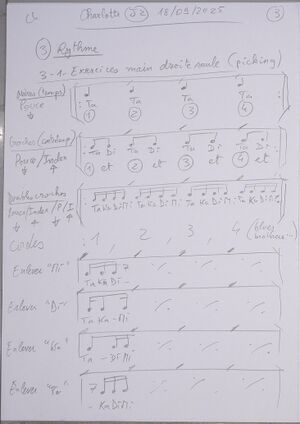 Charlotte 18/09/2025 3
3 Rythme
3-1- Exercices main droite seule (picking)
Noires (temps)
Pouce
Ta Ta Ta Ta
1 2 3 4
Croches (contretemps)
Pouce/Index
Ta Di Ta Di Ta Di Ta Di
1 et 2 et 3 et 4 et
Doubles croches
Pouce/Index/P/I
Ta Ka Di Mi Ta Ka Di Mi Ta Ka Di Mi Ta Ka Di Mi
: 1, 2, 3, 4
Enlever "Mi"
Ta Ka Di
Enlever "Di"
Ta Ka - Mi
Enlever "Ka"
Ta - Di Mi
Enlever "Ta"
- Ka Di Mi